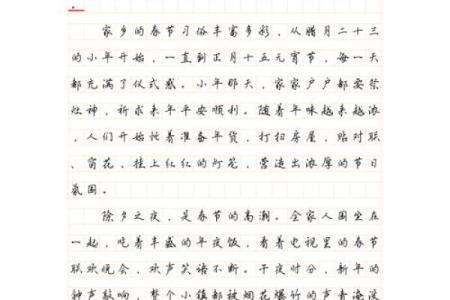 家乡的春节习俗丰富多彩，从腊月二十三
的小年开始，一直到正月十五元宵节，每一天
都充满了仪式感。小年那天，家家户户都要祭
灶神，祈求来年平安顺利。随着年味越来越浓
、人们开始忙着准备年货，打扫房屋，贴对联
、窗花，挂上红红的灯笼，营造出浓厚的节日
氛围。
除夕之夜，是春节的高潮。全家人围坐在
一起，吃着丰盛的年夜饭，看着电视里的春节
联欢晚会，欢声笑语不断。午夜时分，新年的
钟声敲响，整个小镇都被烟花爆竹的声音淹没